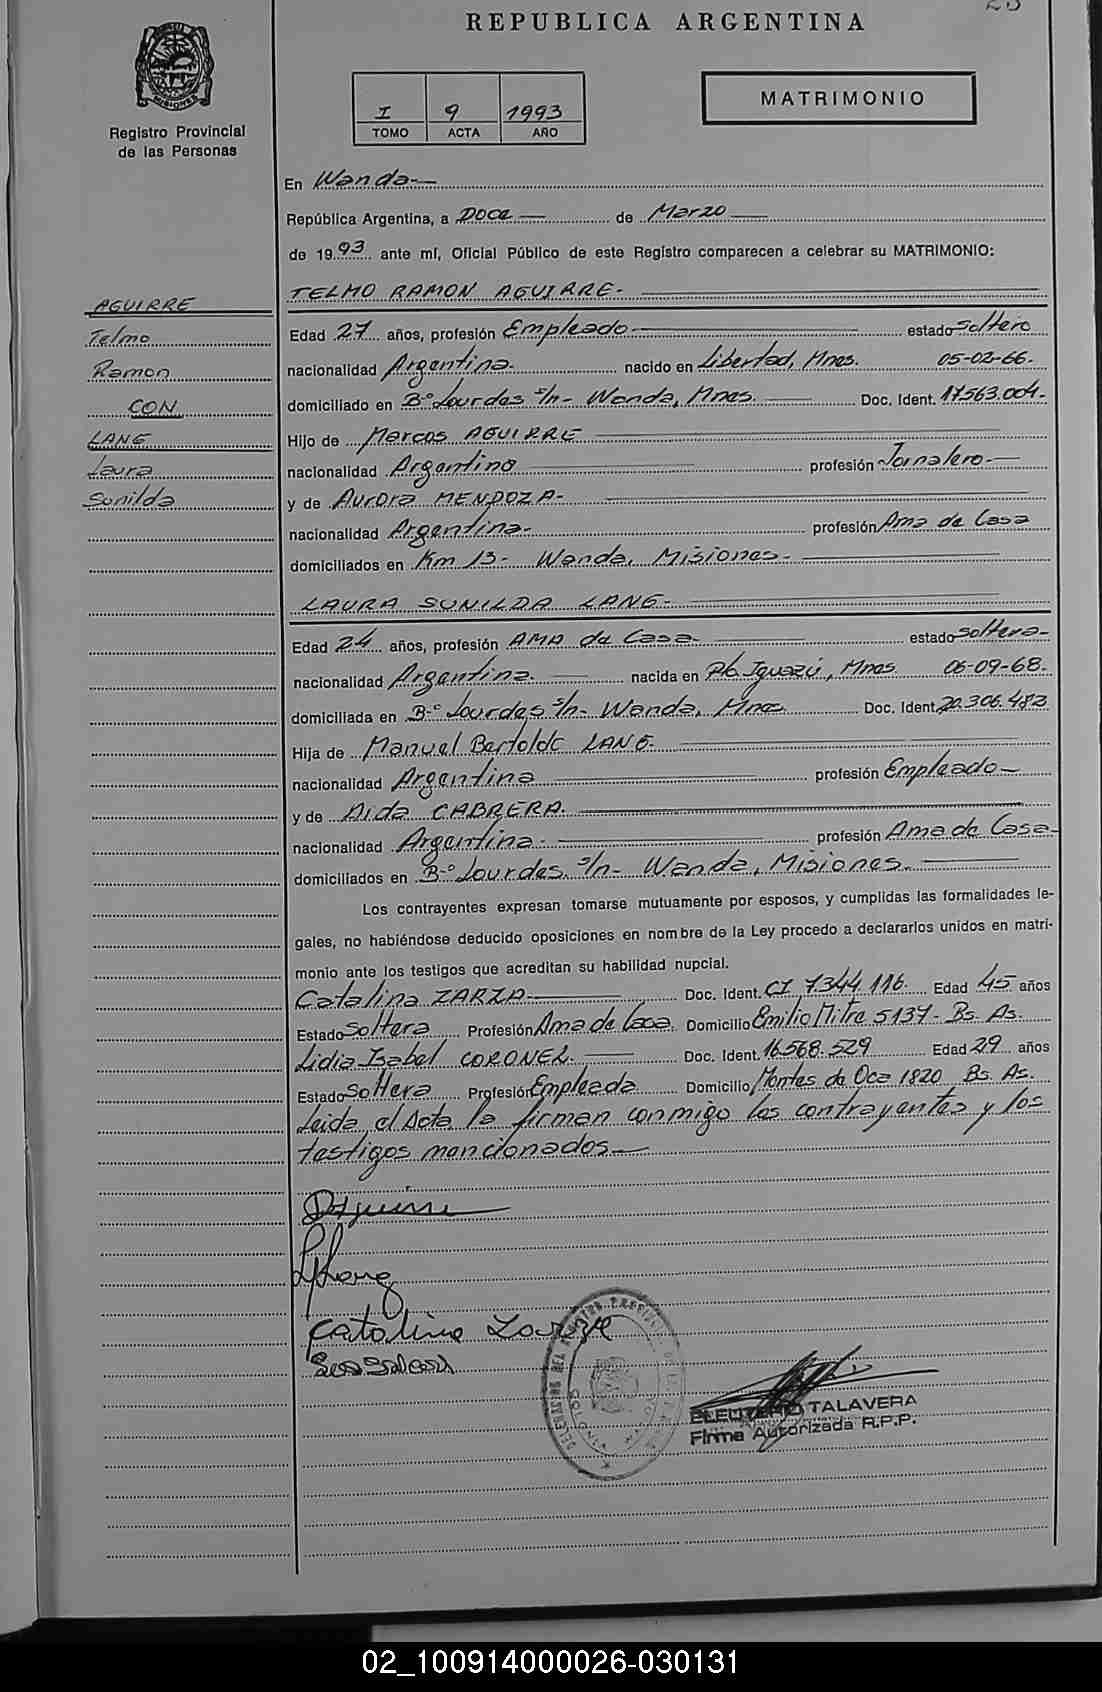 REPUBLICA ARGENTINA
MISIONES
Registro Provincial
de las Personas
I 9 1993
TOMO ACTA AÑO
MATRIMONIO
En Wanda
República Argentina, a Doce de Marzo
de 1993 ante mí, Oficial Público de este Registro comparecen a celebrar su MATRIMONIO:
AGUIRRE
Telmo
Ramon
CON
LANG
Laura
Sunilda
TELMO RAMON AGUIRRE.
Edad 27 años, profesión Empleado estado Soltero
nacionalidad Argentina. nacido en Libertad, Mnes. 05-02-66.
domiciliado en B-º Lourdes s/n- Wanda, Mnes. Doc. Ident. 17.563.004.
Hijo de Marcos AGUIRRE
nacionalidad Argentino profesión Jornalero
y de Aurora MENDOZA-
nacionalidad Argentina. profesión Ama de Casa
domiciliados en Km 13- Wanda, Misiones-
LAURA SUNILDA LANG-
Edad 24 años, profesión AMA de Casa. estado Soltera-
nacionalidad Argentina. nacida en Pto. Iguazú, Mnes. 06-09-68.
domiciliada en B-º Lourdes s/n- Wanda, Mnes. Doc. Ident. 20.306.482
Hija de Manuel Bertoldo LANG.
nacionalidad Argentina profesión Empleado
y de Aida CABRERA.
nacionalidad Argentina. profesión Ama de Casa-
domiciliados en B-º Lourdes. s/n- Wanda, Misiones.
Los contrayentes expresan tomarse mutuamente por esposos, y cumplidas las formalidades le-
gales, no habiéndose deducido oposiciones en nombre de la Ley procedo a declararlos unidos en matri-
monio ante los testigos que acreditan su habilidad nupcial.
Catalina ZARZA. Doc. Ident. CI 7.344.116. Edad 45 años
Estado Soltera Profesión Ama de Casa. Domicilio Emilio Mitre 5137- Bs. As.
Lidia Isabel CORONEL. Doc. Ident. 16.568.529 Edad 29 años
Estado Soltera Profesión Empleada Domicilio Montes de Oca 1820 Bs. As.
Leida el Acta la firman conmigo los contrayentes y los
testigos mencionados
Catalina Zarza
ELEUTERIO TALAVERA
Firma Autorizada R.P.P.
02_100914000026-030131